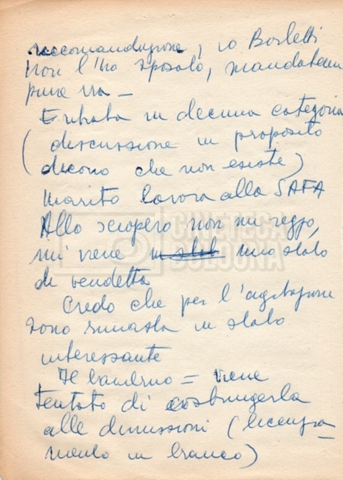 raccomandazione, io Borletti
non l'ho sposato, mandatemi
pure via —
Entrata in decima categoria
(discussione in proposito
dicono che non esiste)
Marito lavora alla SAFA
Allo sciopero non mi reggo,
mi viene uno stato
di vendetta
Credo che per l'agitazione
sono rimasta in stato
interessante
Il bambino = viene
tentato di costringerla
alle dimissioni (licenzia-
mento in bianco)
CINETECA
BOLOGNA